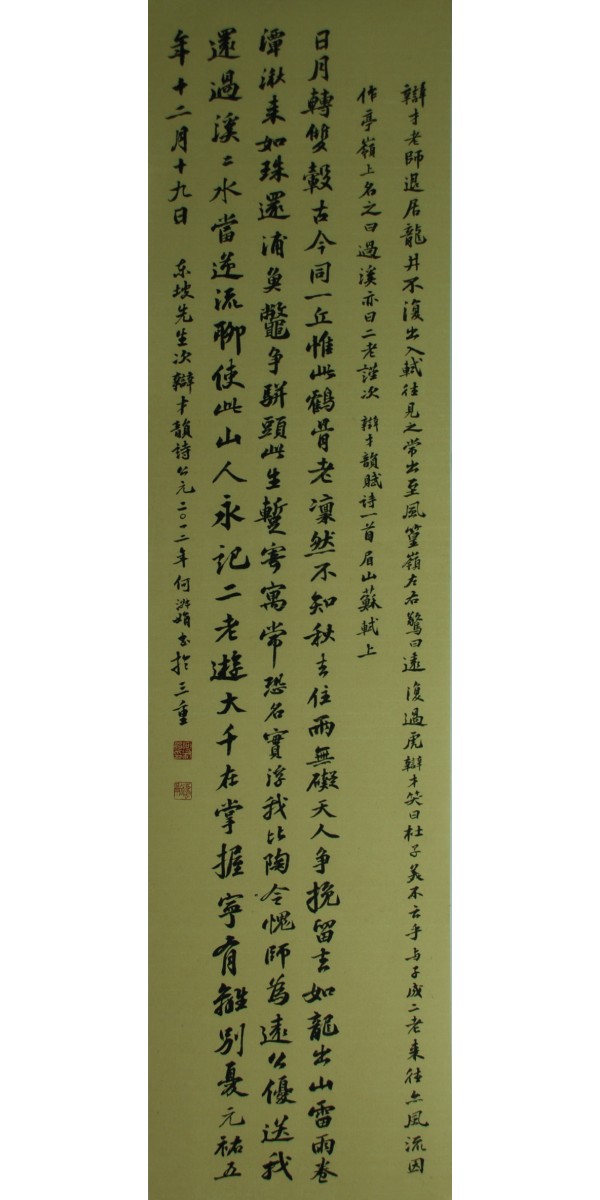 辯才老師退居龍井不復出入軾往見之常出至風篁嶺左右驚曰遠復過虎辯才笑曰杜子美不云乎与子成二老来往亦風流因
作亭嶺上名之曰過溪亦曰二老謹次辯才韻賦詩一首眉山蘇軾上
日月轉雙轂古今同一丘惟此鶴骨老凜然不知秋去住兩無礙天人争挽留去如龍出山雷雨卷
潭湫来如珠還浦魚鼈争駢頭此生暫寄寓常恐名實浮我比陶令愧師為遠公優送我
還過溪二水當逆流聊使此山人永記二老遊大千在掌握寧有離別憂元祐五
年十二月十九日
东坡先生次辯才韻詩公元二〇一二年何
书於三重